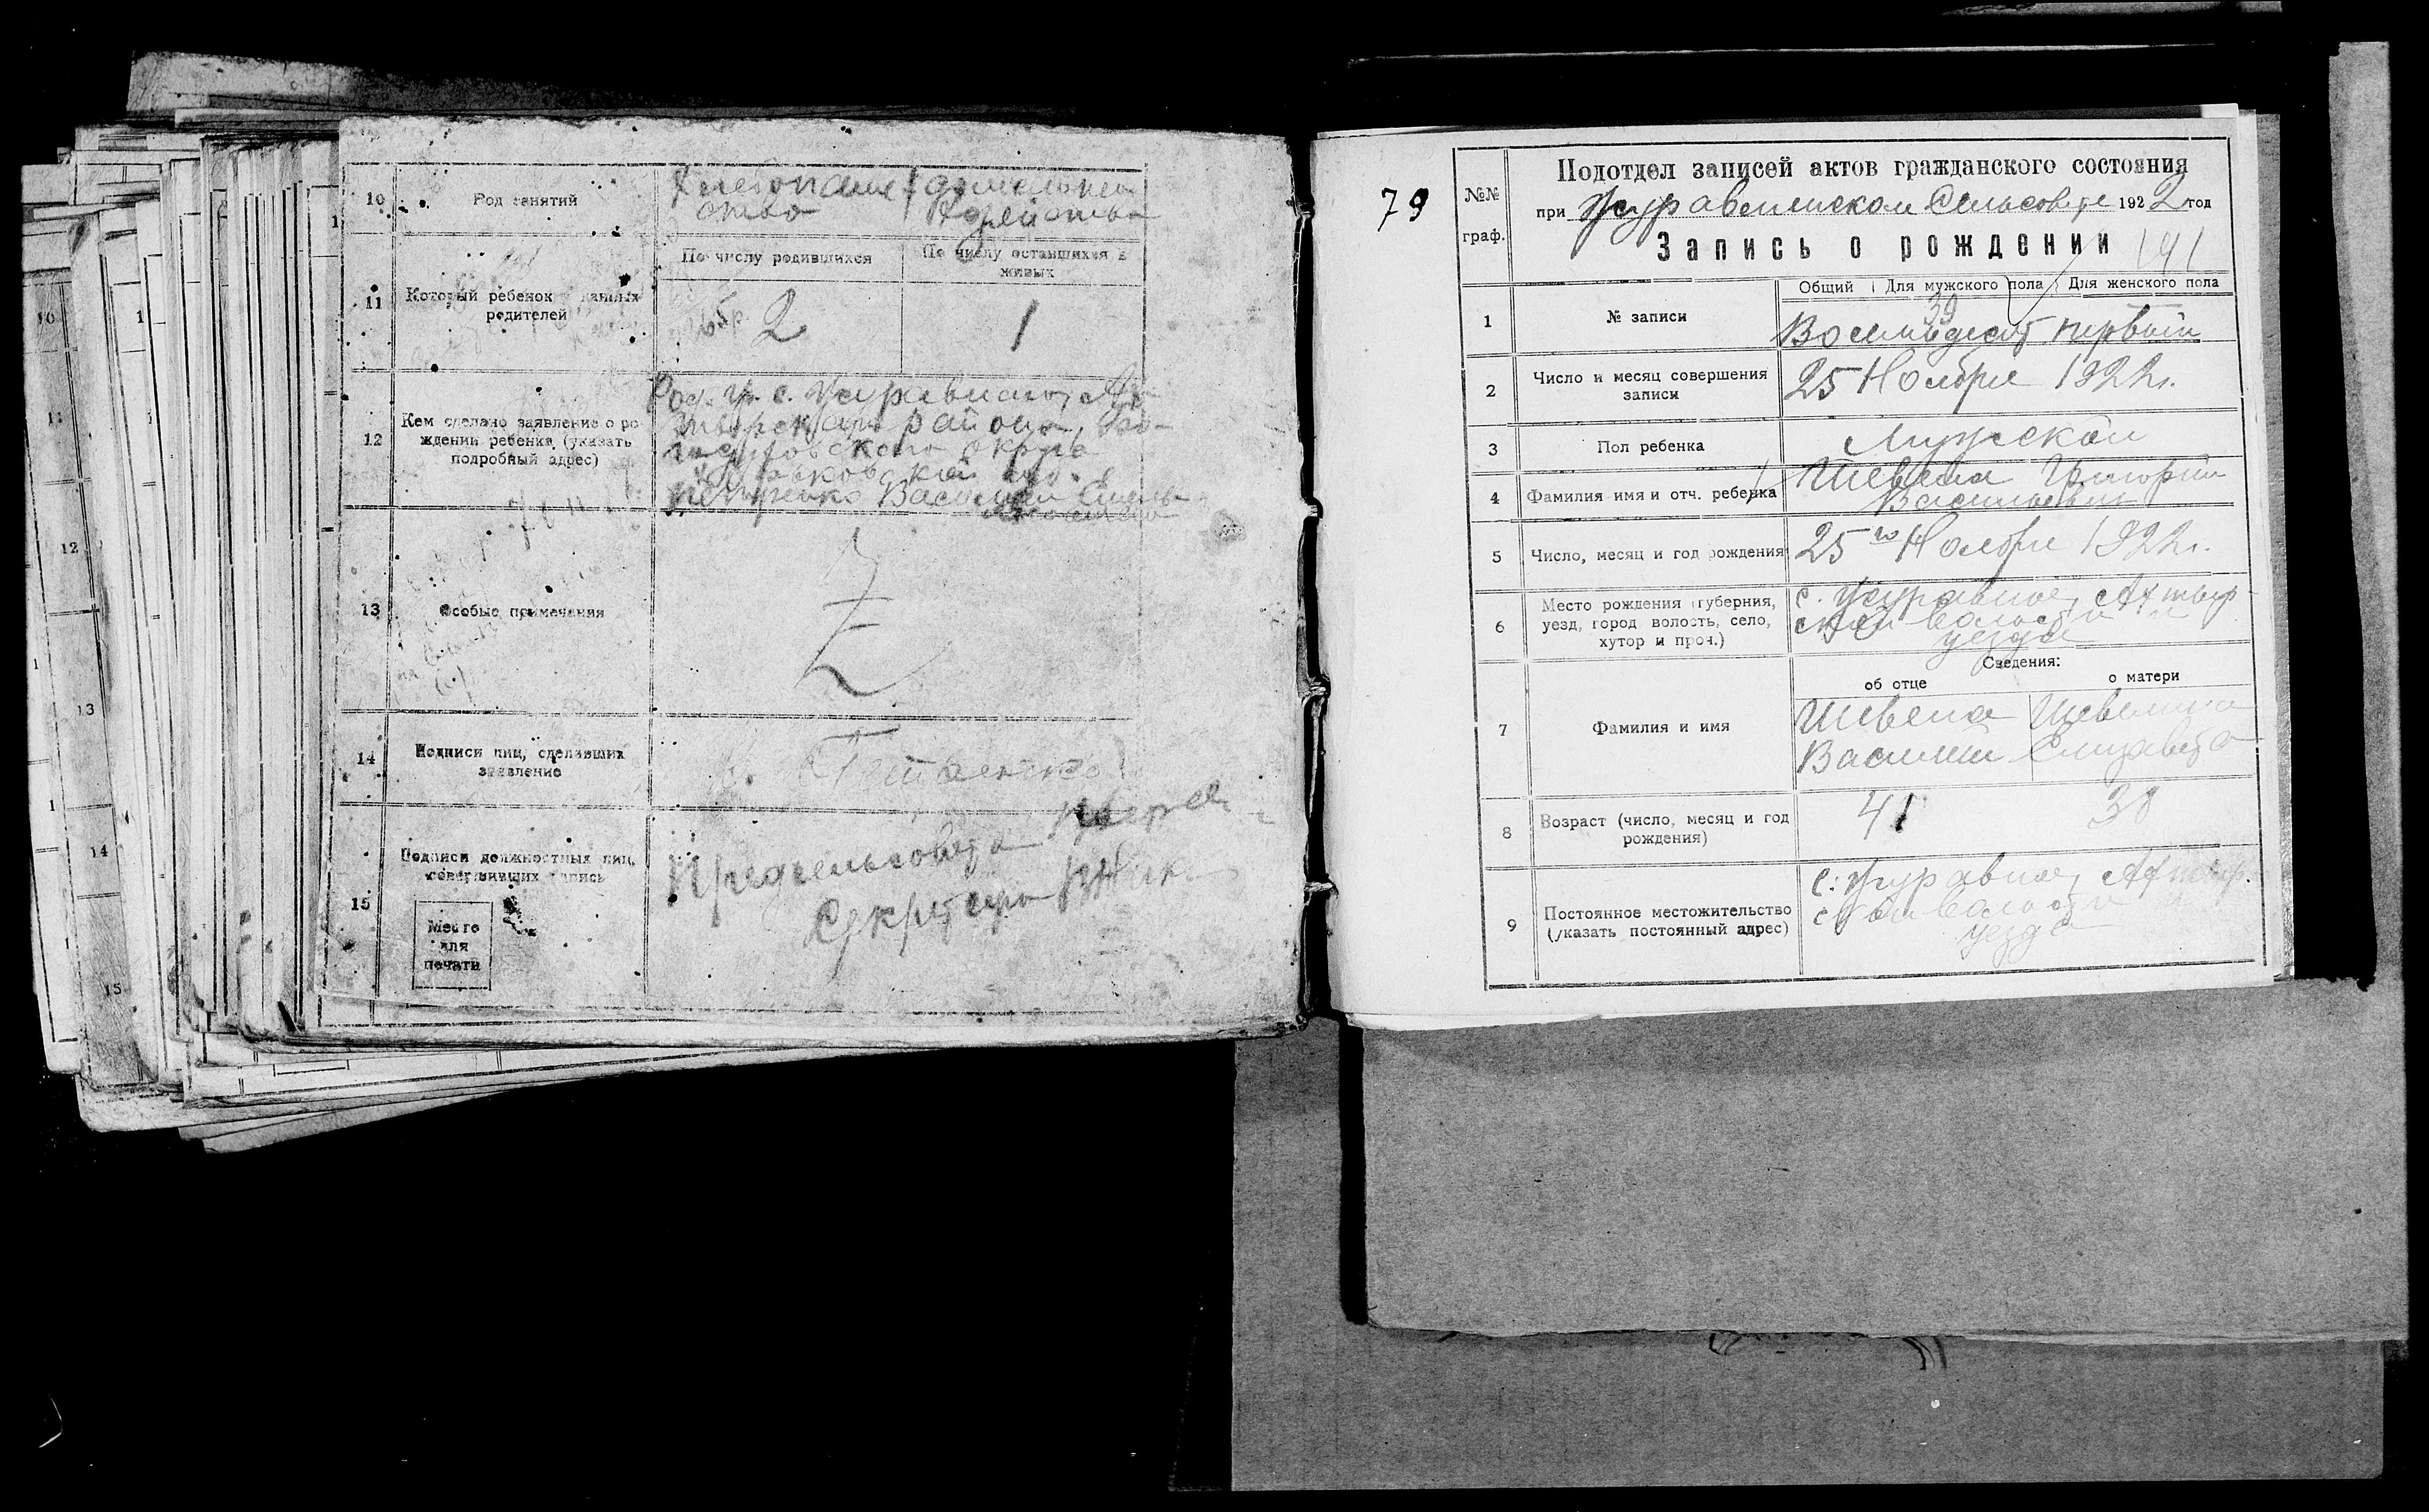 10
Род занятий
Хлебопаше-
ство
домашнее
хозяйство
11
Который ребенок у данных
родителей
По числу родившихся
По числу оставшихся в
живых
2
1
12
Кем сделано заявление о ро-
ждении ребенка (указать
подробный адрес)
с. Журавного, Ах-
тырского района, Бо-
годуховского округа
Харьковской губ.
Петренко Василий Емель-
13
Особые примечания
Z
14
Подписи лиц, сделавших
заявление
15
Подписи должностных лиц,
совершивших запись
Место
для
печати
Предсельсовета
Секретарь
79
№№
граф.
Подотдел записей актов гражданского состояния
при Журавленском Сельсовете 1922 год
Запись о рождении
191
1
№ записи
Общий
Для мужского пола
Для женского пола
39
Восемьдесят первый
2
Число и месяц совершения
записи
25 Ноября 1922 г.
3
Пол ребенка
Мужской
4
Фамилия имя и отч. ребенка
Шевела Григорий
Васильевич
5
Число, месяц и год рождения
25го Ноября 1922 г.
6
Место рождения (губерния,
уезд, город волость, село,
хутор и проч.)
с. Журавное, Ахтыр-
ской волости и
уезда
Сведения:
об отце
о матери
7
Фамилия и имя
Шевела
Василий
Шевелина
Елизавета
8
Возраст (число, месяц и год
рождения)
41
38
9
Постоянное местожительство
(указать постоянный адрес)
с. Журавное, Ахтыр-
ской волости и
уезда
10
11
12
13
14
15